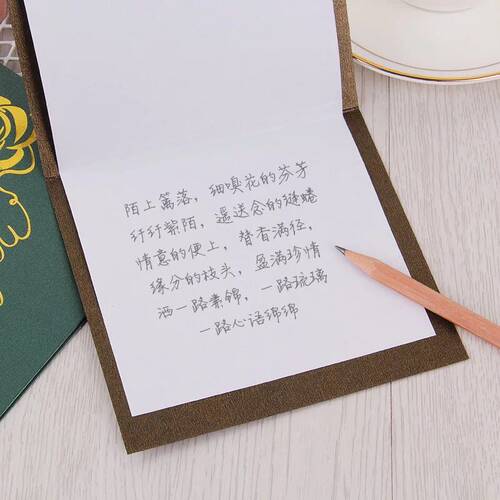 陌上篱落，细嗅花的芬芳
纤纤紫陌，递送念的缱绻
情意的便上，替香满径，
缘分的枝头，盈满珍情
洒一路素锦，一路琉璃
一路心语绵绵